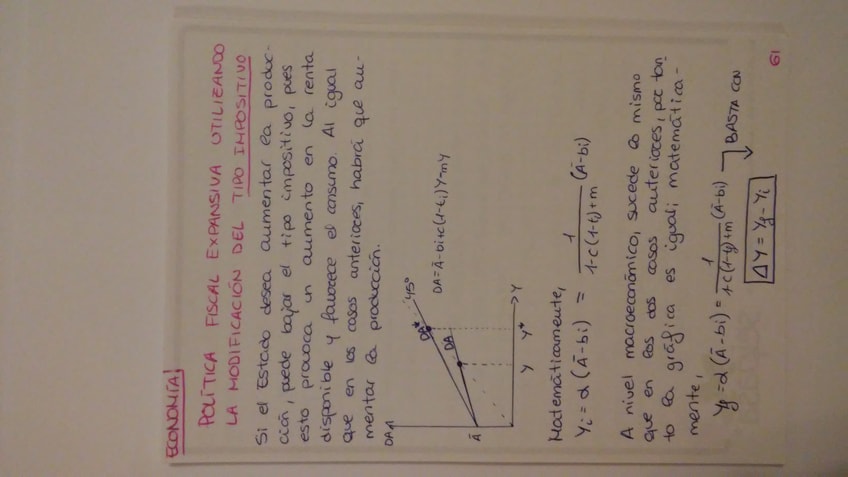 ECONOMÍA!
POLÍTICA FISCAL EXPANSIVA UTILIZANDO
LA MODIFICACIÓN DEL TIPO IMPOSITIVO
Si el Estado desea aumentar la produc-
ción, puede bajar el tipo impositivo, pues
esto provoca un aumento en la renta
disponible y favorece el consumo. Al igual
que en los casos anteriores, habrá que au-
mentar la producción.
DA
45°
DA*
DA
DA=Ā-bi+c(1-t₁)Y-mY
Ā
Y Y* Y
Matemáticamente,
Yi = α(Ā-bi) = 1/(1-c(1-t)+m) (Ā-bi)
A nivel macroeconómico, sucede lo mismo
que en los dos casos anteriores, por tan
to la gráfica es igual; matemática-
mente,
Yf = α(Ā-bi) = 1/(1-c(1-t)+m) (Ā-bi)
BASTA CON
ΔY = Yf - Yi
61